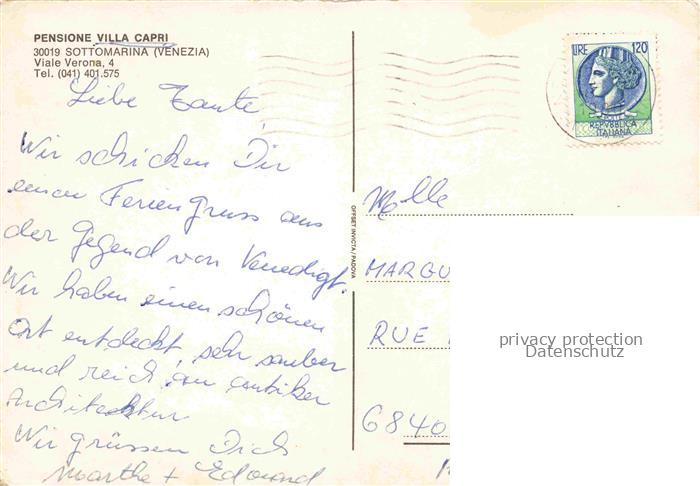 PENSIONE VILLA CAPRI
30019 SOTTOMARINA (VENEZIA)
Viale Verona, 4
Tel. (041) 401.575
Liebe Tante,
Wir schicken Dir
einen Feriengruss aus
der Gegend von Venedigt.
Wir haben einen schönen
Ort entdeckt, sehr sauber
und reich an antiker
Architektur
Wir grüssen Dich
Marthe + Edouard
OFFSET INVICTA/PADOVA
LIRE 120
REPVBBLICA
ITALIANA
Melle
MARGU
RUE
6840
privacy protection
Datenschutz